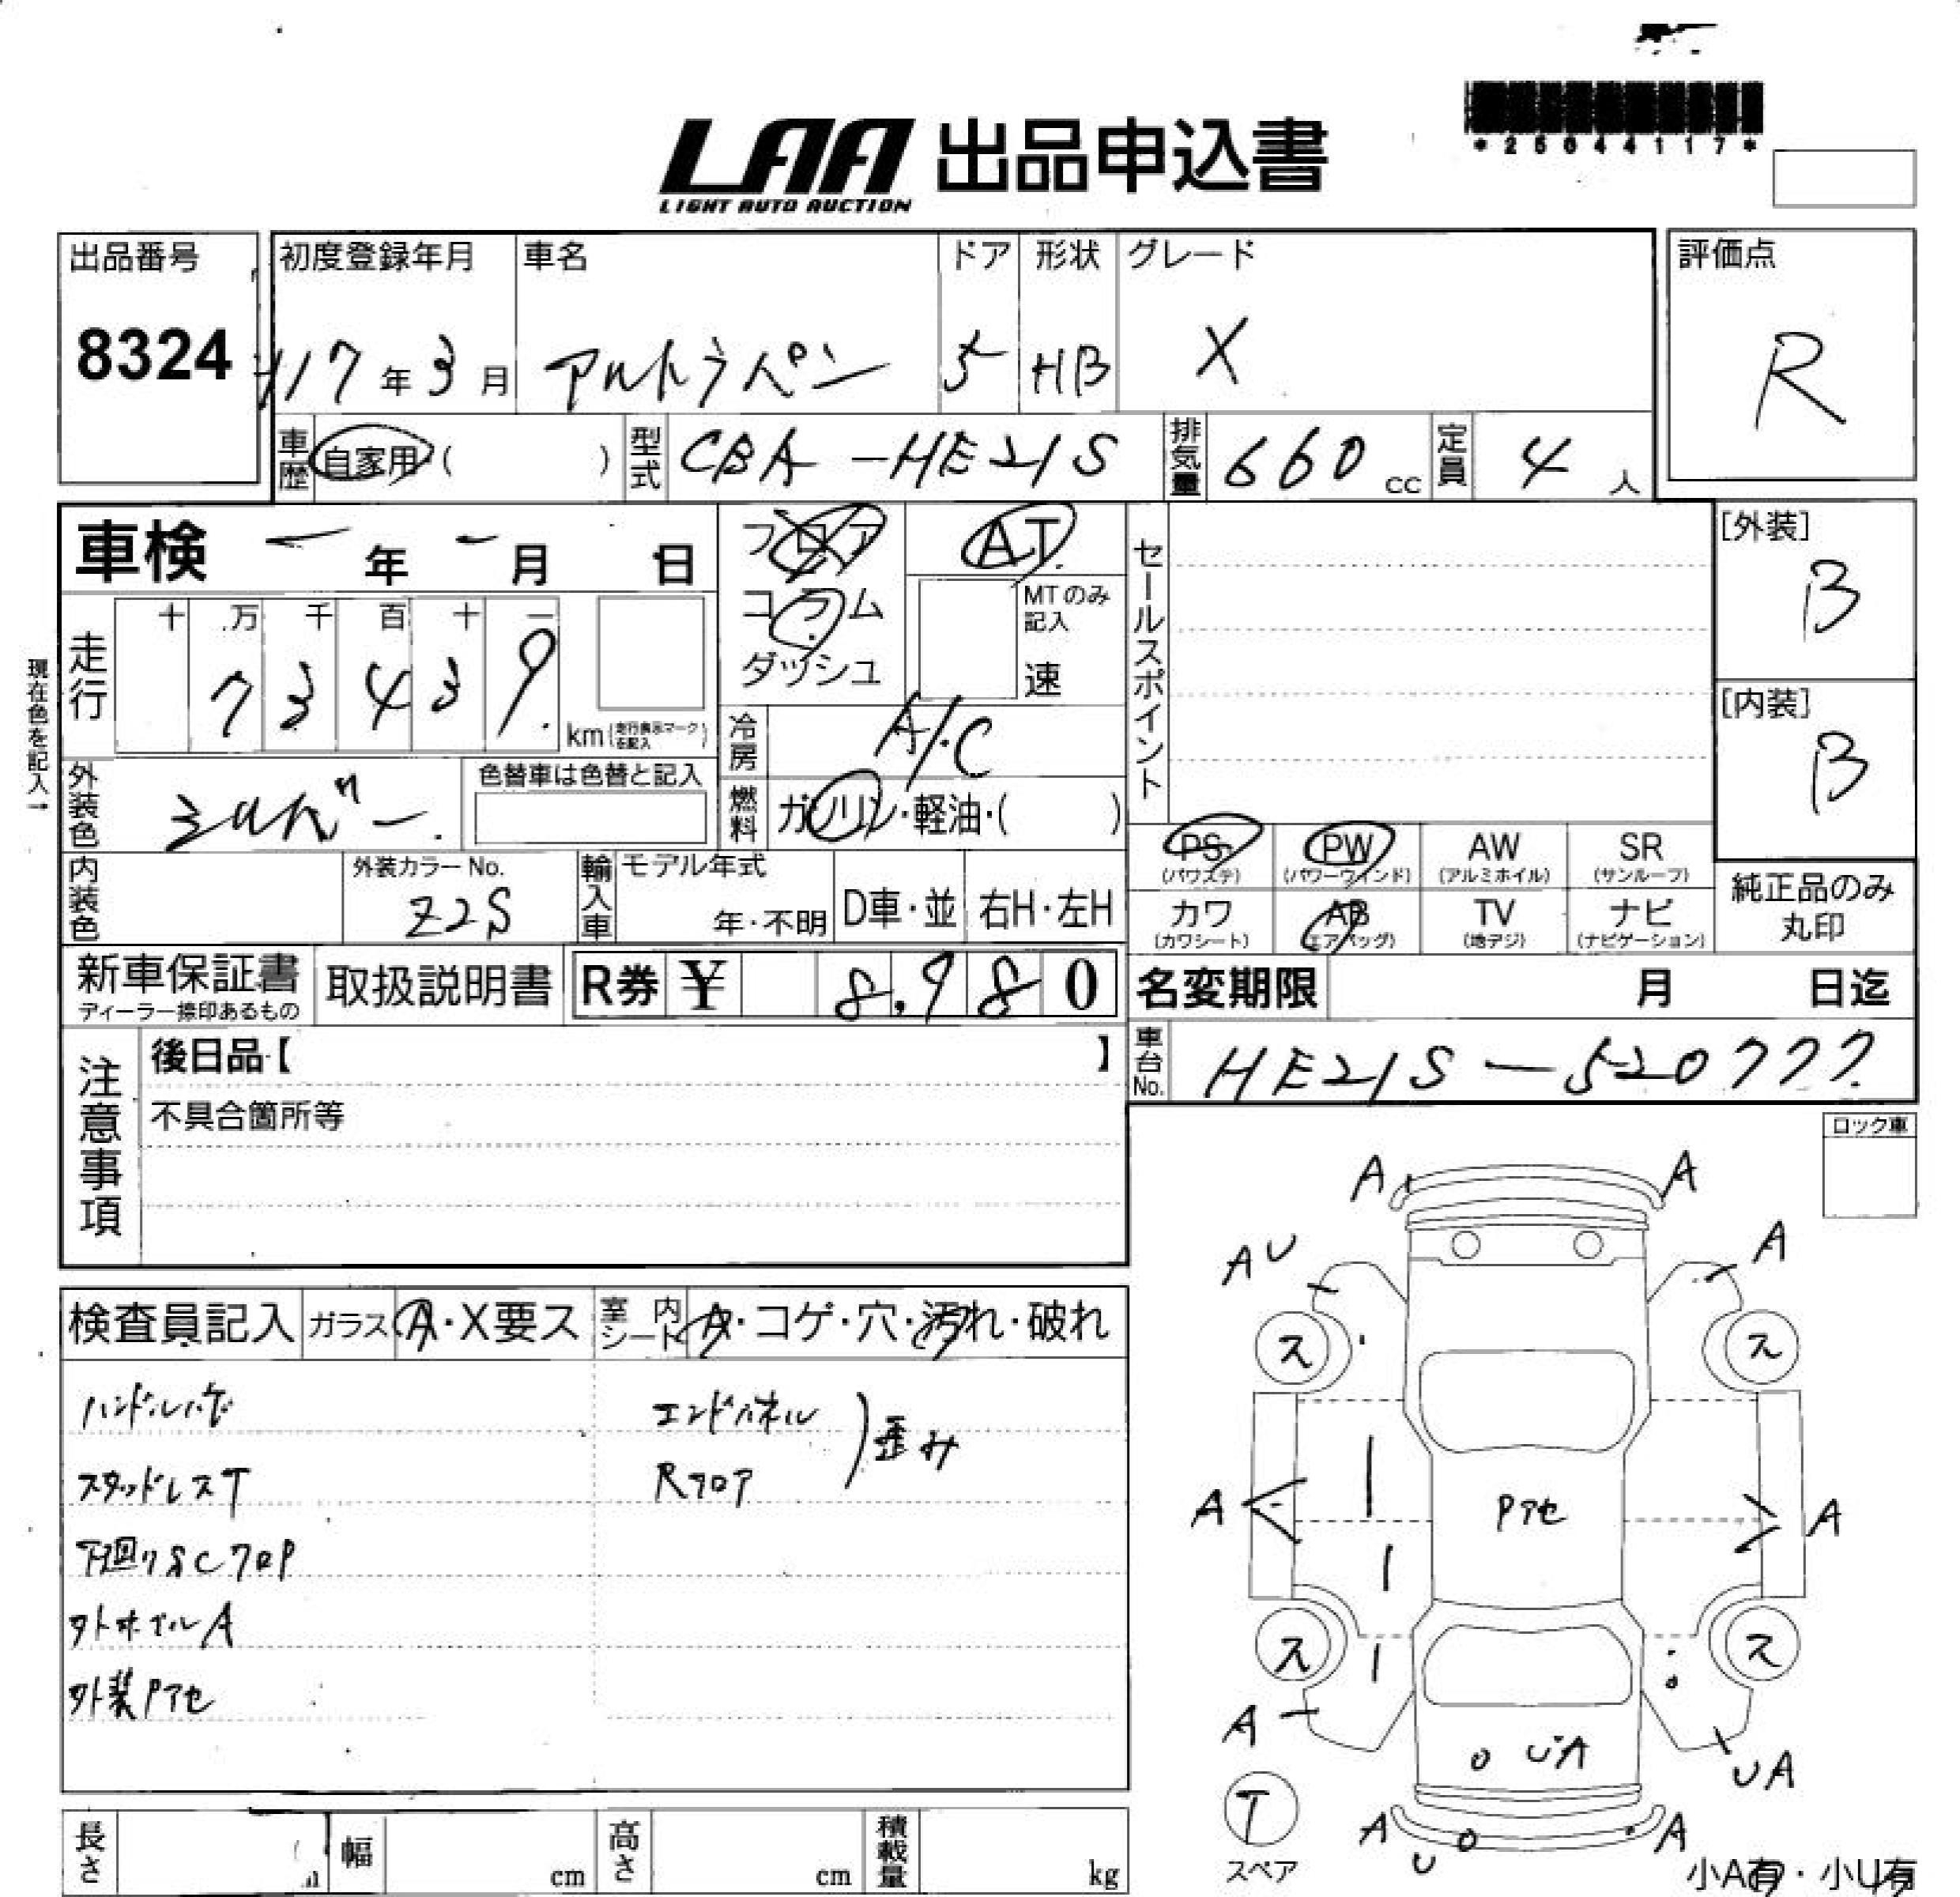 *25044117*
LAA 出品申込書
LIGHT AUTO AUCTION
出品番号 初度登録年月 車名 ドア 形状 グレード 評価点
8324 H17年3月 アルトラパン 5 HB X R
車歴 自家用( ) 型式 CBA-HE21S 排気量 660cc 定員 4人
車検 - 年 - 月 日 フロア AT セールスポイント [外装]
コラム MTのみ記入 B
ダッシュ 速
現在色を記入→
走行 十 万 千 百 十 一
7 3 4 3 9 km(走行表示マークを記入) 冷房 A/C [内装]
B
外装色 シルバー 色替車は色替と記入 燃料 ガソリン・軽油・( )
PS (パワステ) PW (パワーウインド) AW (アルミホイル) SR (サンルーフ)
内装色 外装カラーNo. Z2S 輸入車 モデル年式 年・不明 D車・並 右H・左H
カワ (カワシート) AB (エアバッグ) TV (地デジ) ナビ (ナビゲーション) 純正品のみ丸印
新車保証書 ディーラー捺印あるもの 取扱説明書 R券 ¥ 8,980 名変期限 月 日迄
注意事項 後日品【 】 車台No. HE21S-520777
不具合箇所等
ロック車
A A
AU A
検査員記入 ガラス A・X要ス 室内シート A・コゲ・穴・汚れ・破れ
ス ス
ハンドル エンドパネル
歪み
スタッドレスT Rフロア
A Pアセ A
下廻りSCフロP
外ホイルA
ス ス
外装Pアセ
A UA UA
T
スペア
A U A
長さ 幅 cm 高さ cm 積載量 kg
小A有・小U有